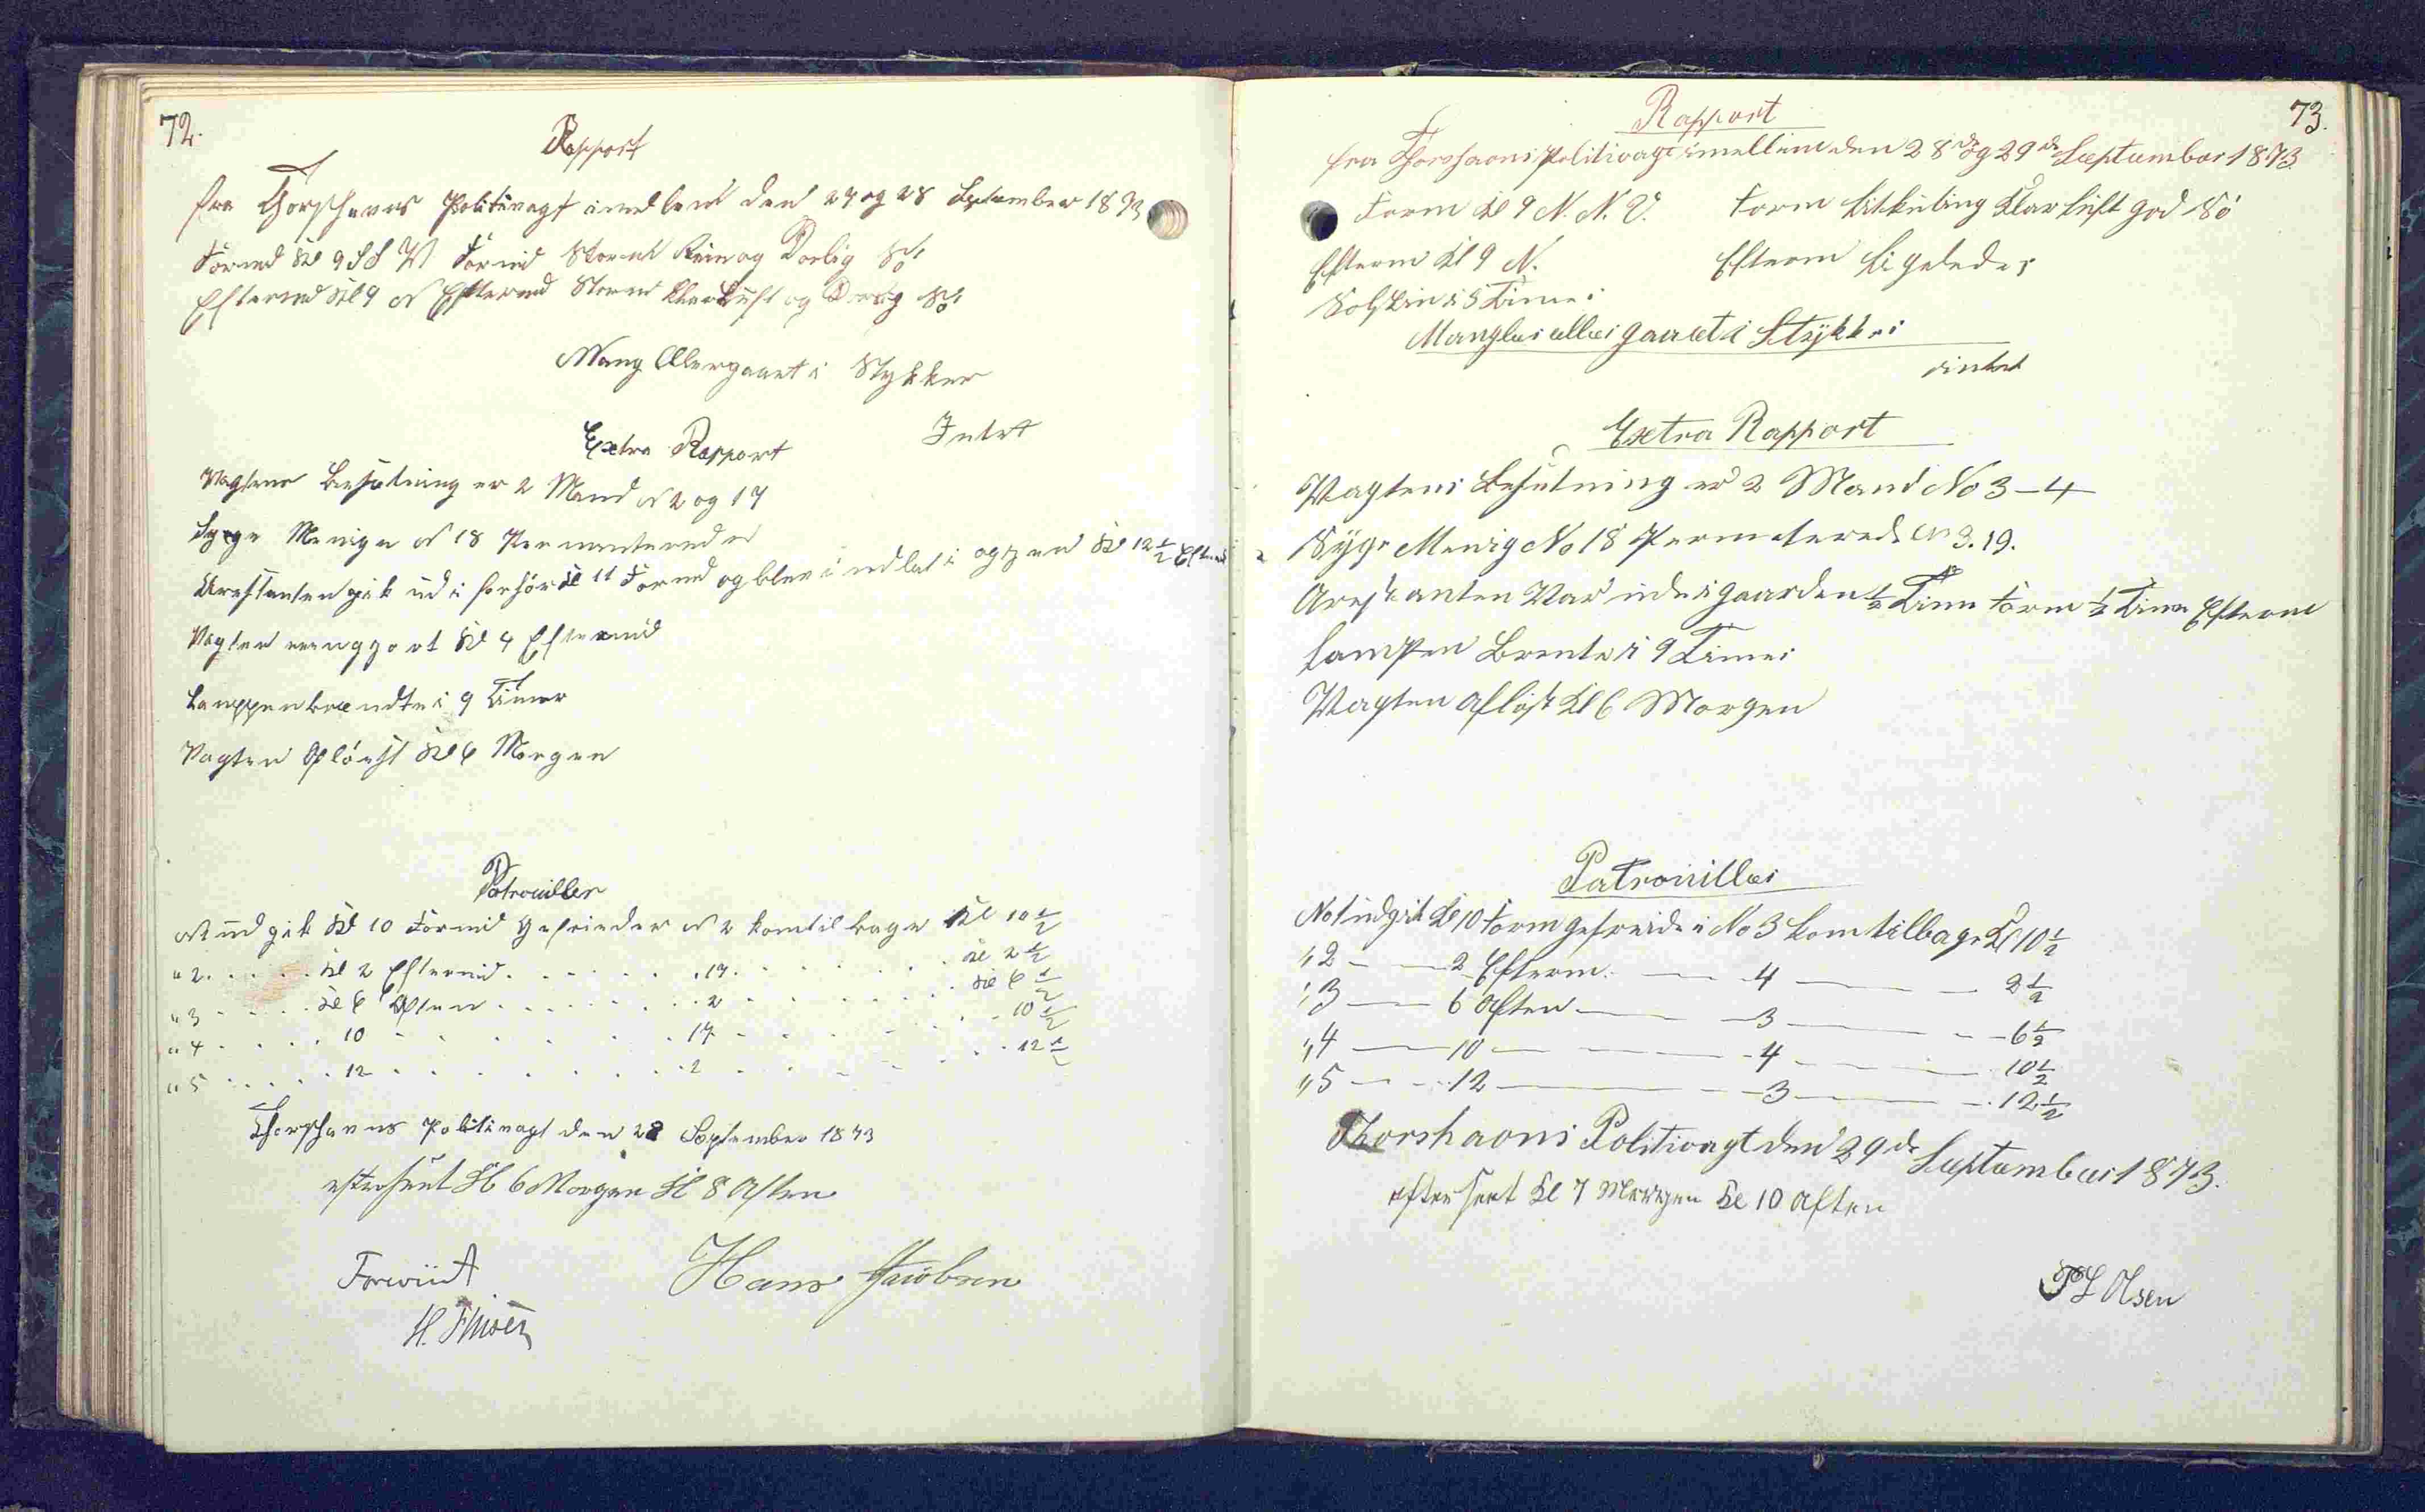 72.
Rapport
fra Thorshavns Politivagt imellem den 27 og 28 September 1873
Formd Kl 9 S S V Formid Storm Rein og Dorlig Sö
Eftermd Kl 9 N Eftermd Storm Klar Luft og Dorlig Sö
Mang Ellergaaet i Stykker
Intet
Extra Rapport
Vagtens Besætning er 2 Mand N 2 og 17
Syge Menige N 18 Permenterede
Arestanten gik ud i forhör Kl 11 Formd og blev indlat i ogjen Kl 12 1/2 Efterm
Vagten reengjort Kl 4 Eftermid
Lamppen brændte i 9 Timer
Vagten Aflöest Kl 6 Morgen
Patrouiller
N 1 ud gik Kl 10 Formid Gefrieder N 2 kom tilbage Kl 10 1/2
" 2 . . . . . Kl 2 Eftermid . . . . . . 17 . . . . . . Kl 2 1/2
" 3 . . . . . Kl 6 Aften . . . . . . 2 . . . . . . Kl 6 1/2
" 4 . . . . . 10 . . . . . . 17 . . . . . . 10 1/2
" 5 . . . . . 12 . . . . . . 2 . . . . . . 12 1/2
Thorshavns Politivagt den 28 September 1873
efterseet Kl 6 Morgen Kl 8 Aften
Foreviist
Hans Jacobsen
73.
Rapport
fra Thorshavns Politivagt imellem den 28de og 29de September 1873.
Form Kl 9 N. N. V. Form Litkuling Klar Luft god Sö
Efterm Kl 9 N. Efterm Ligeledes
Solskin i 5 Timer
Mangler eller gaaet i Stykker
intet
Extra Rapport
Vagtens Besetning er 2 Mand No 3 - 4
Syge Menig No 18 Permeterede N 3. 19.
Arestanten Var ude i gaarden 1/2 Time Form 1/2 Time Efterm
Lampen Brente i 9 Timer
Vagten Aflöst Kl 6 Morgen
Patrouiller
No 1 udgik Kl 10 Form gefreider No 3 kom tilbage Kl 10 1/2
" 2 — — 2 Efterm. — 4 — — 2 1/2
" 3 — 6 Aften — — 3 — — 6 1/2
" 4 — 10 — — 4 — — 10 1/2
" 5 — — 12 — — 3 — — 12 1/2
Thorshavns Politivagt den 29de September 1873.
efterseet Kl 7 Morgen Kl 10 Aften
Olsen